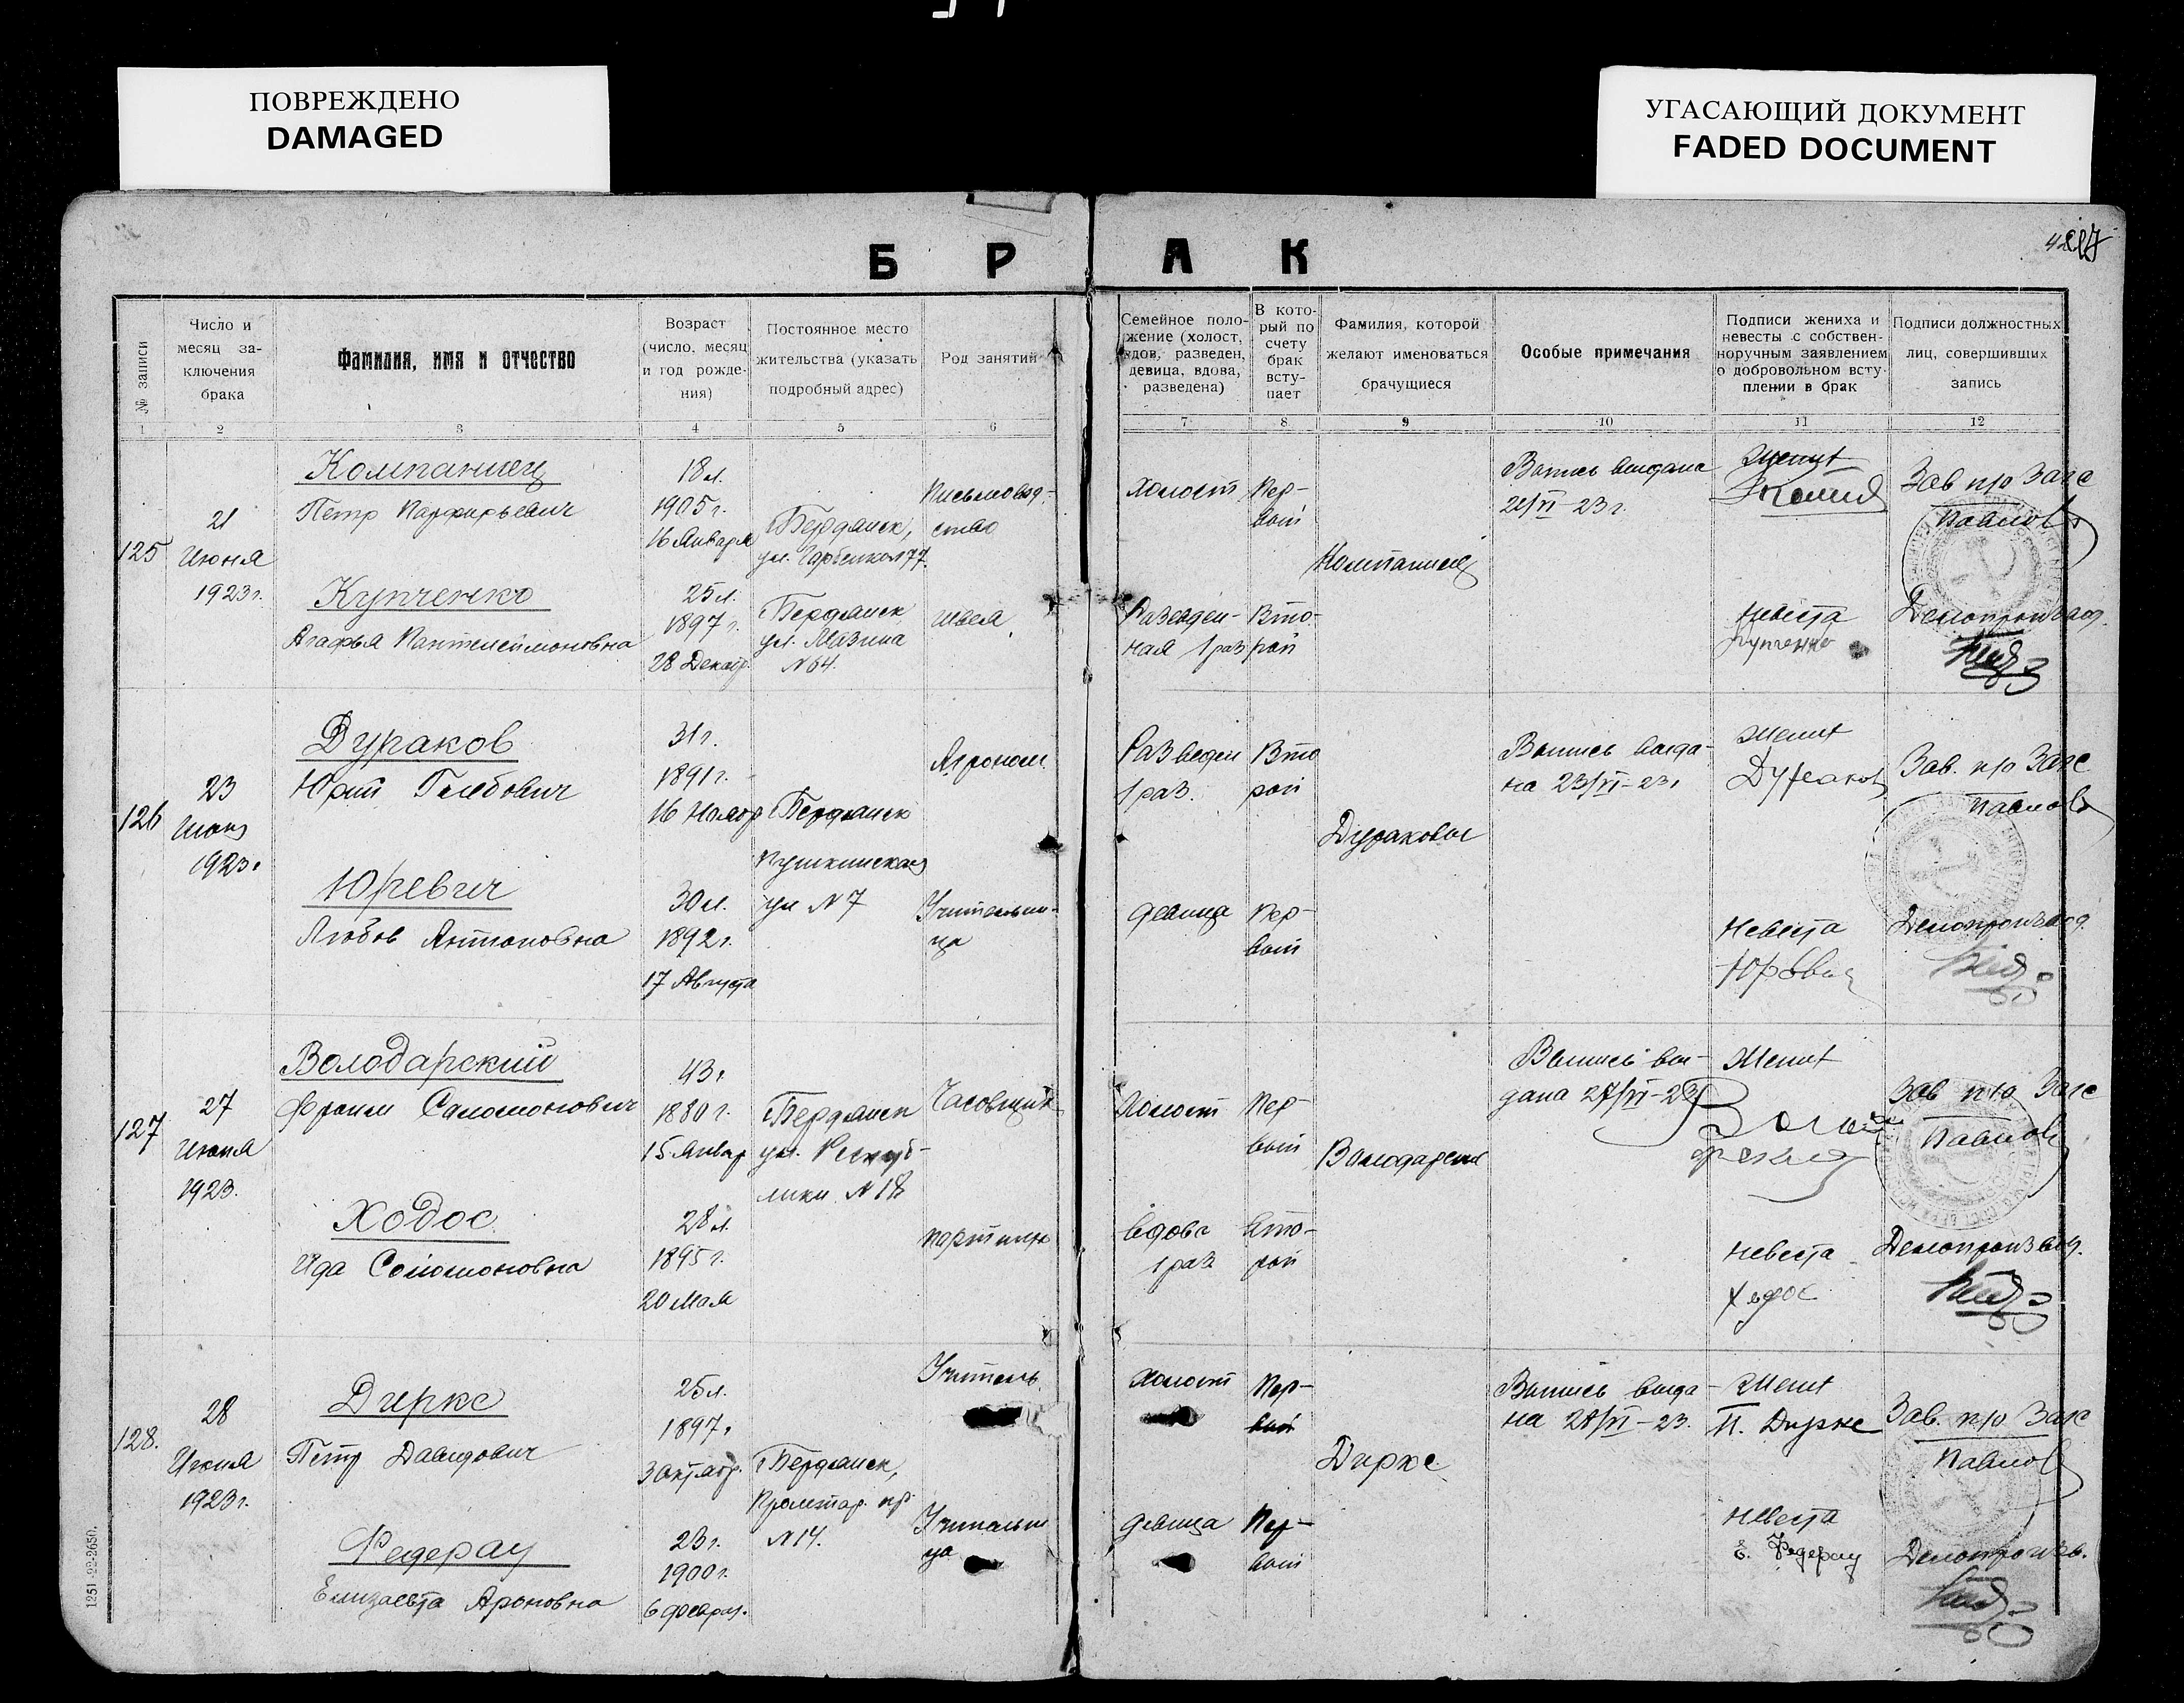 ПОВРЕЖДЕНО
DAMAGED
УГАСАЮЩИЙ ДОКУМЕНТ
FADED DOCUMENT
БРАК
№ записи
Число и
месяц за-
ключения
брака
Фамилия, имя и отчество
Возраст
(число, месяц
и год рожде-
ния)
Постоянное место
жительства (указать
подробный адрес)
Род занятий
Семейное поло-
жение (холост,
вдов, разведен,
девица, вдова,
разведена)
В кото-
рый по
счету
брак
всту-
пает
Фамилия, которой
желают именоваться
брачущиеся
Особые примечания
Подписи жениха и
невесты с собствен-
норучным заявлением
о добровольном всту-
плении в брак
Подписи должностных
лиц, совершивших
запись
1 2 3 4 5 6 7 8 9 10 11 12
125
21
Июня
1923г.
Компаниец
Петр Парфирьевич
18 л.
1905 г.
16 Января
Бердянск,
Письмовод-
ство
холост
Пер-
вый
Компаниец
Выпись выдана
21/VI-23 г.
Жених
Зав п/о Загс
Павлов
Купченко
Агафья Пантелеймоновна
25 л.
1897 г.
28 Декабр
Бердянск
ул. Мазина
N 64.
швея
Разведен-
ная 1 раз
Вто-
рой
Невеста
Купченко
Делопроизвод.
126
23
Июня
1923г.
Дураков
Юрий Глебович
31 г.
1891 г.
16 Ноябр
Бердянск
Пушкинская
ул N 7
Агроном
Разведен
1 раз.
Вто
рой
Дураковы
Выпись выда-
на 23/VI-23г
Жених
Дураков
Зав. п/о Загс
Павлов
Юревич
Любов Антоновна
30 л.
1892 г.
17 Августа
Учительни-
ца
девица
Пер-
вый
Невеста
Делопроизвод.
127
27
Июня
1923.
Володарский
Фроим Саломонович
43 г
1880 г.
15 Январ
Бердянск
ул. Респуб-
лики N 18
Часовщик
Холост
Пер-
вый
Володарские
Выпись вы-
дана 27/VI-23
Жених
Зав п/о Загс
Павлов
Ходос
Ида Соломоновна
28 л.
1895 г.
20 Мая
портниха
Вдова
1 раз
Вто-
рой
Невеста
Ходос
Делопроизвод.
128.
28
Июня
1923г.
Диркс
Петр Давидович
25 л.
1897 г
3 Октябр.
Бердянск,
Пролетар. пр.
N 14.
Учитель
холост
Пер-
вый
Диркс
Выпись выда-
на 28/VI-23.
Жених
П. Диркс
Зав. п/о Загс
Павлов
Федерау
Елизавета Ароновна
23 г.
1900 г.
6 феврал.
Учительни
ца
девица
Пер-
вый
Невеста
Е. Федерау
Делопроизв.
1251-22-2650.